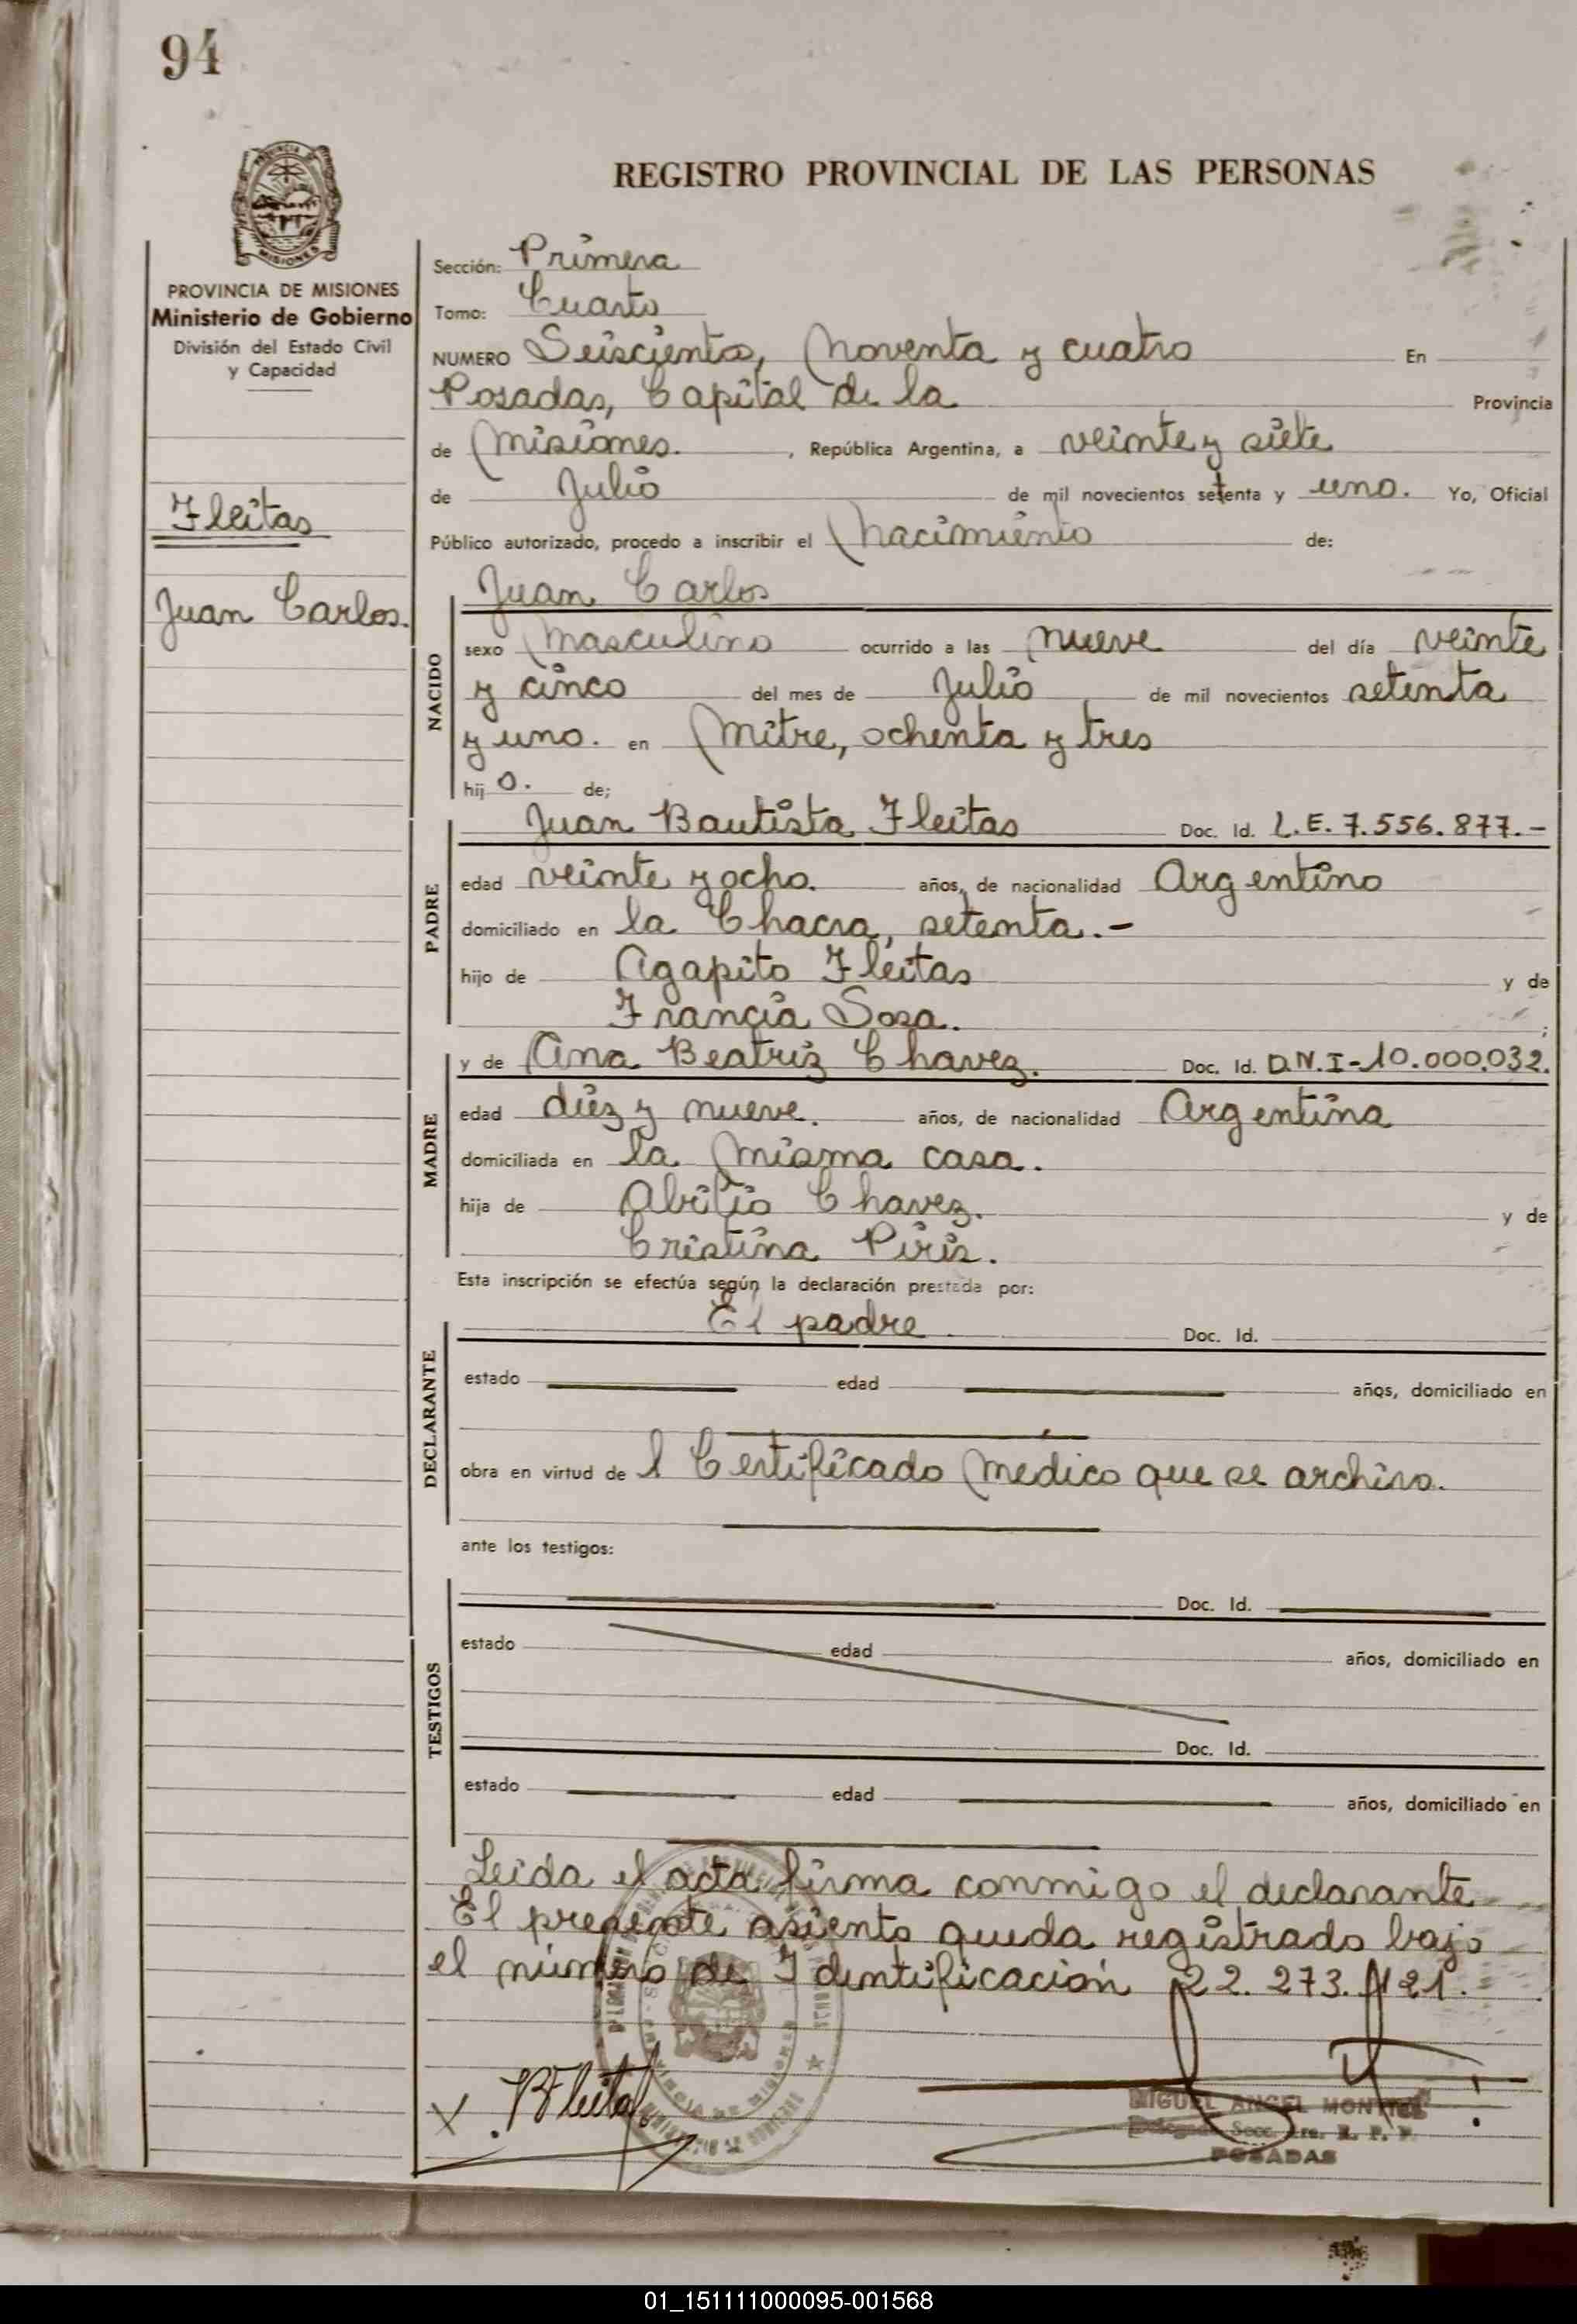 94
REGISTRO PROVINCIAL DE LAS PERSONAS
PROVINCIA DE
MISIONES
PROVINCIA DE MISIONES
Ministerio de Gobierno
División del Estado Civil
y Capacidad
Fleitas
Juan Carlos.
Sección: Primera
Tomo: Cuarto
NUMERO Seiscientos, Noventa y cuatro En
Posadas, Capital de la Provincia
de Misiones. , República Argentina, a veinte y siete
de Julio de mil novecientos setenta y uno. Yo, Oficial
Público autorizado, procedo a inscribir el Nacimiento de:
Juan Carlos
NACIDO
sexo Masculino ocurrido a las nueve del día veinte
y cinco del mes de Julio de mil novecientos setenta
y uno. en Mitre, ochenta y tres
hij o. de;
PADRE
Juan Bautista Fleitas Doc. Id. L.E. 7.556.877.-
edad veinte y ocho. años, de nacionalidad Argentino
domiciliado en la Chacra, setenta.-
hijo de Agapito Fleitas y de
Francia Sosa. ;
MADRE
y de Ana Beatriz Chavez. Doc. Id. D.N.I-10.000.032.
edad diez y nueve. años, de nacionalidad Argentina
domiciliada en la misma casa.
hija de Abilio Chavez. y de
Cristina Piris.
Esta inscripción se efectúa según la declaración prestada por:
DECLARANTE
El padre Doc. Id.
estado edad años, domiciliado en
obra en virtud de l Certificado Médico que se archiva.
ante los testigos:
TESTIGOS
Doc. Id.
estado edad años, domiciliado en
Doc. Id.
estado edad años, domiciliado en
Leida el acta firma conmigo el declarante
El presente asiento queda registrado bajo
el número de Identificación 22.273.121.
X. BFleitas
MIGUEL ANGEL MONTIEL
Secc. 1ra. R. P. P.
POSADAS
01_151111000095-001568